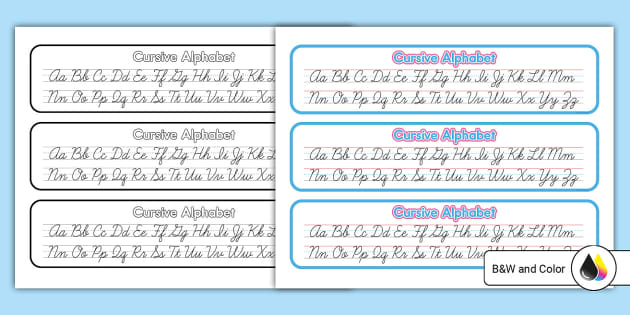 Cursive Alphabet
Aa Bb Cc Dd Ee Ff Gg Hh Ii Jj Kk L
Nn Oo Pp Qq Rr Ss Tt Uu Vv Ww Xx
Cursive Alphabet
Aa Bb Cc Dd Ee Ff Gg Hh Ii Jj Kk L
Nn Oo Pp Qq Rr Ss Tt Uu Vv Ww Xx
Cursive Alphabet
Aa Bb Cc Dd Ee Ff Gg Hh Ii Jj Kk L
Nn Oo Pp Qq Rr Ss Tt Uu Vv Ww Xx
Cursive Alphabet
Aa Bb Cc Dd Ee Ff Gg Hh Ii Jj Kk Ll Mm
Nn Oo Pp Qq Rr Ss Tt Uu Vv Ww Xx Yy Zz
Cursive Alphabet
Aa Bb Cc Dd Ee Ff Gg Hh Ii Jj Kk Ll Mm
Nn Oo Pp Qq Rr Ss Tt Uu Vv Ww Xx Yy Zz
Cursive Alphabet
Aa Bb Cc Dd Ee Ff Gg Hh Ii Jj Kk Ll Mm
Nn Oo Pp Qq Rr Ss Tt Uu Vv
B&W and Color